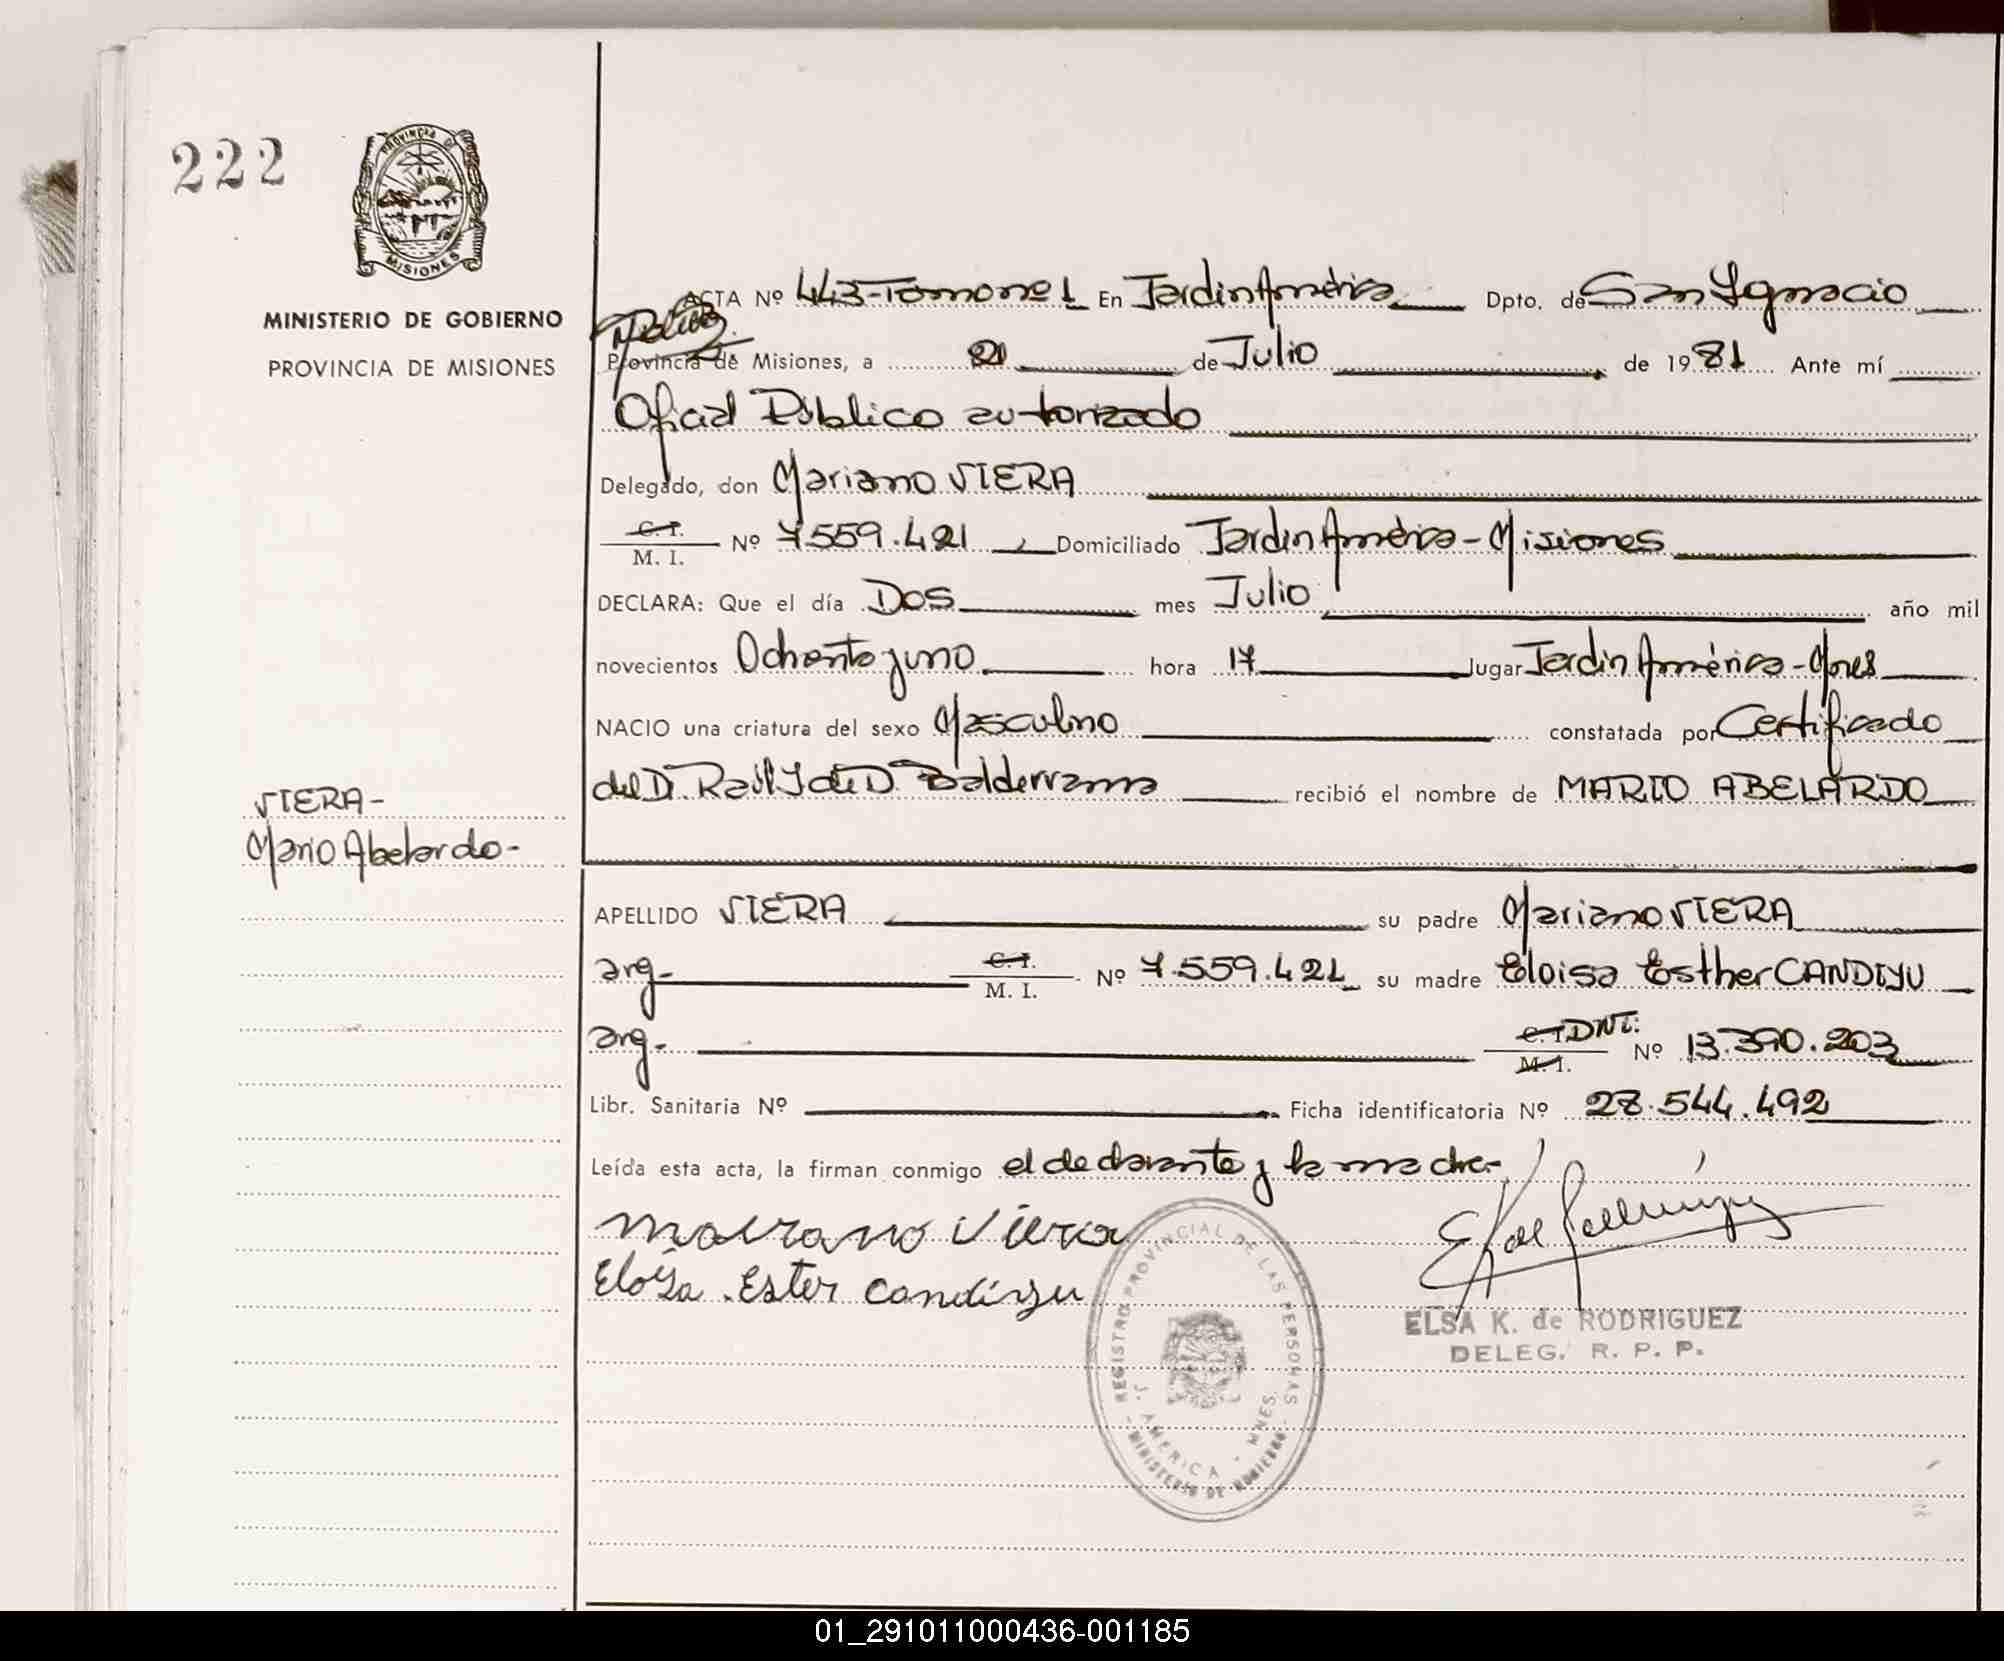 222
PROVINCIA DE
MISIONES
MINISTERIO DE GOBIERNO
PROVINCIA DE MISIONES
ACTA Nº 443-Tomo nº 1 En Jardín América Dpto. de San Ignacio
Provincia de Misiones, a 21 de Julio de 1981 Ante mí
Oficial Público autorizado
Delegado, don Mariano VIERA
C. I.
M. I. Nº 7559.421 Domiciliado Jardín América - Misiones
DECLARA: Que el día Dos mes Julio año mil
novecientos Ochenta y uno hora 17 Jugar Jardín América - Mnes
NACIO una criatura del sexo Masculino constatada por Certificado
del Dr. Raúl J de D. Balderrama recibió el nombre de MARIO ABELARDO
VIERA-
Mario Abelardo-
APELLIDO VIERA su padre Mariano VIERA
arg- C. I.
M. I. Nº 7.559.421 su madre Eloisa Esther CANDIYU
arg- C. I. DNI:
M. I. Nº 13.390.203
Libr. Sanitaria Nº Ficha identificatoria Nº 28.544.492
Leída esta acta, la firman conmigo el declarante y la madre-
Mariano Viera
Eloísa Ester Candiyu
REGISTRO PROVINCIAL DE LAS PERSONAS
J. AMERICA - MNES.
- MINISTERIO DE GOBIERNO -
ELSA K. de RODRIGUEZ
DELEG. R. P. P.
01_291011000436-001185